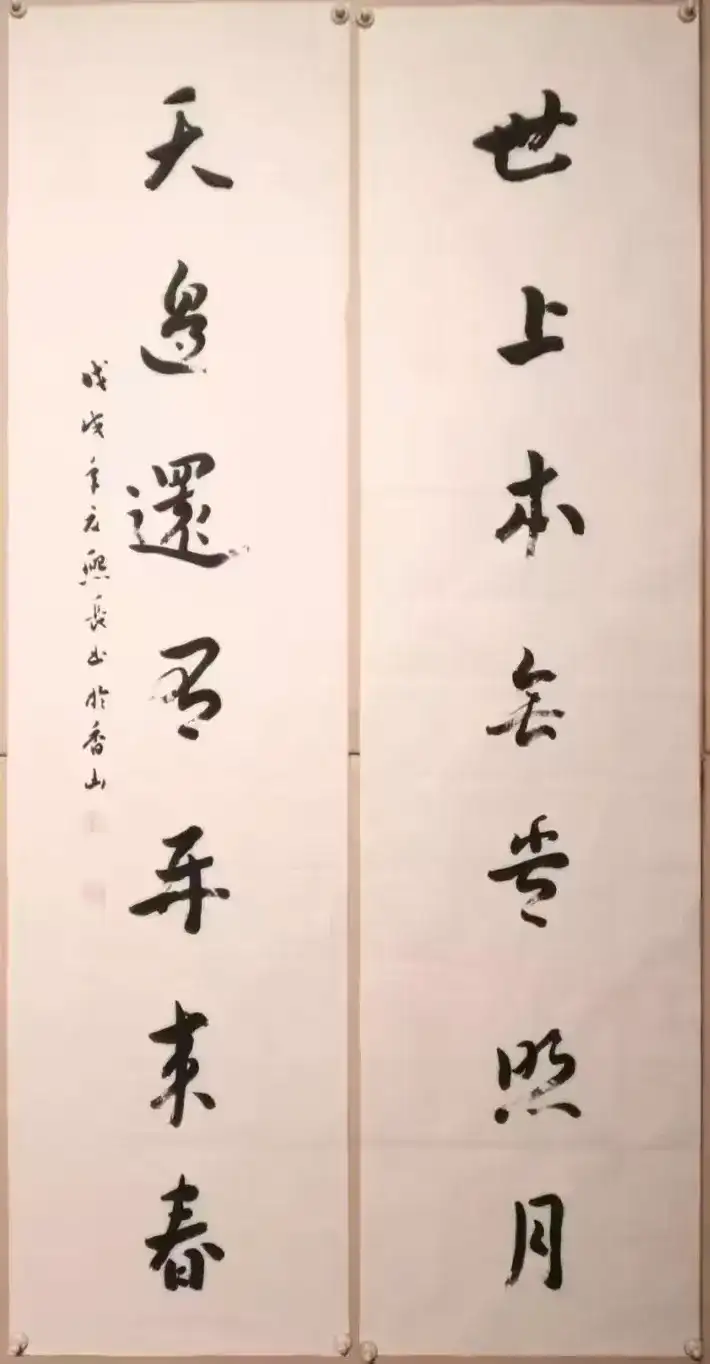 世上本無常照月
天邊還有再來春
戊戌年元熙長書於香山